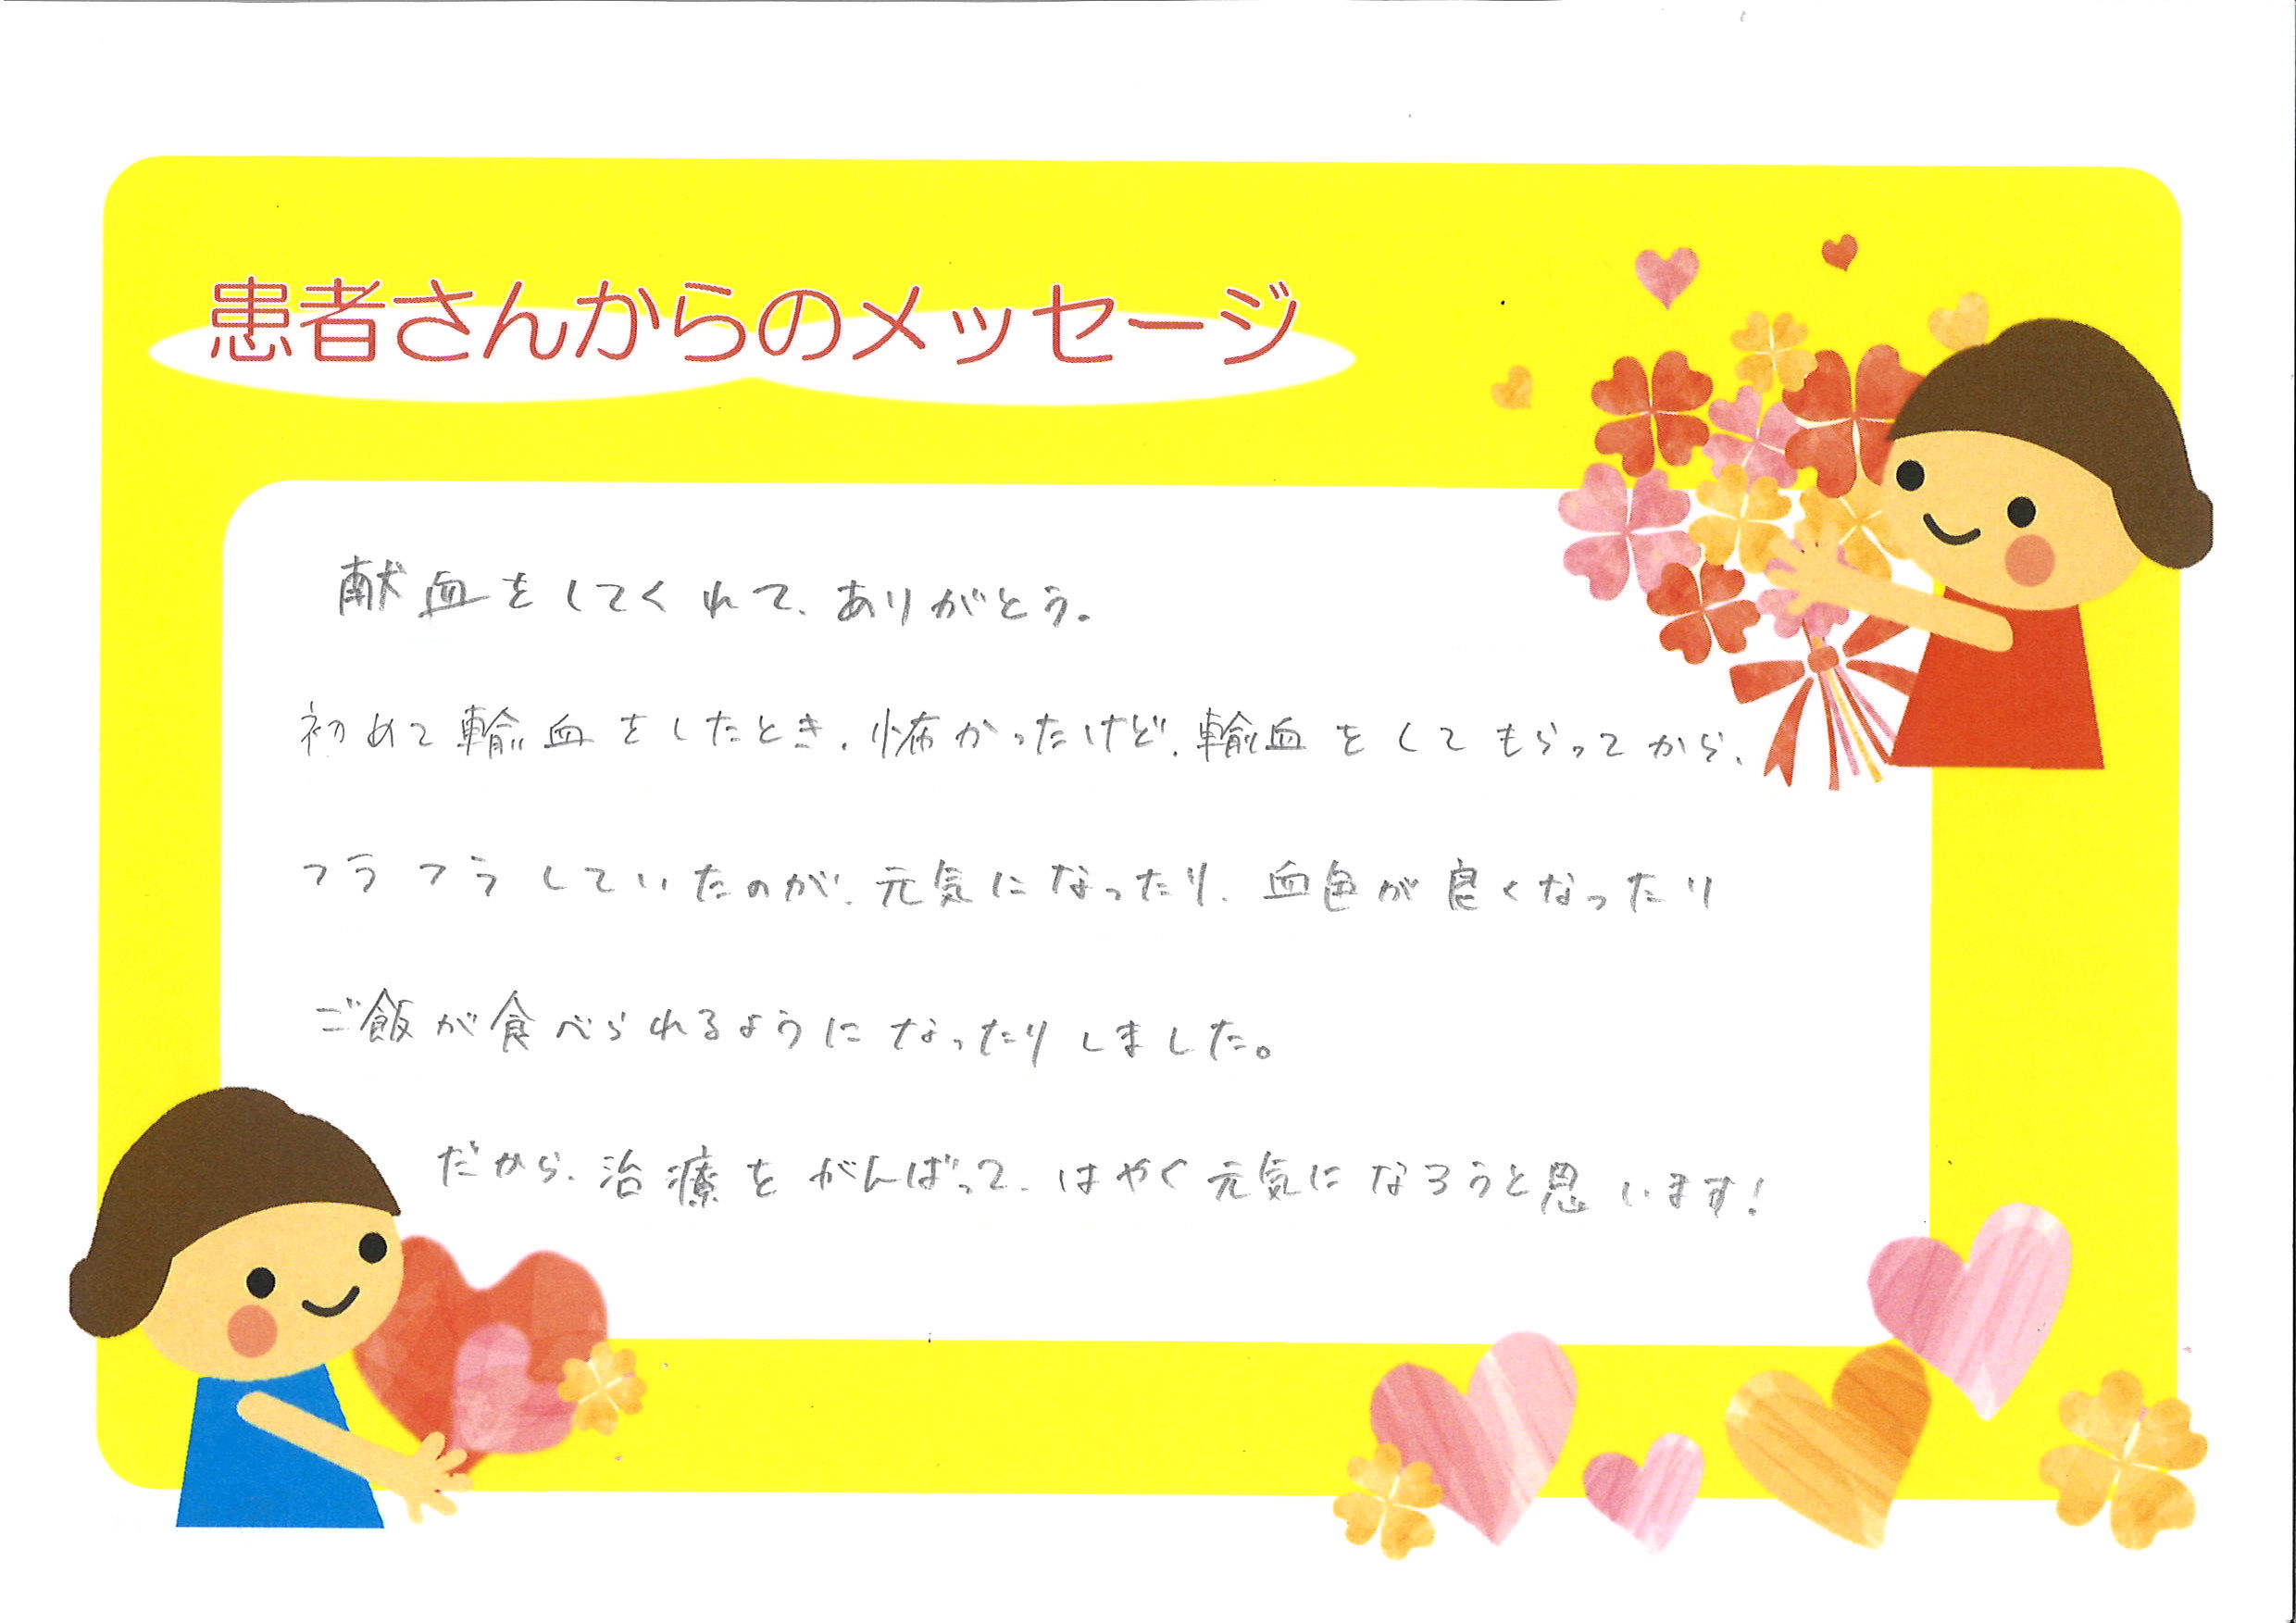 患者さんからのメッセージ
献血をしてくれて、ありがとう。
初めて輸血をしたとき、怖かったけど、輸血をしてもらってから、
フラフラしていたのが、元気になったり、血色が良くなったり
ご飯が食べられるようになったりしました。
だから、治療をがんばって、はやく元気になろうと思います!